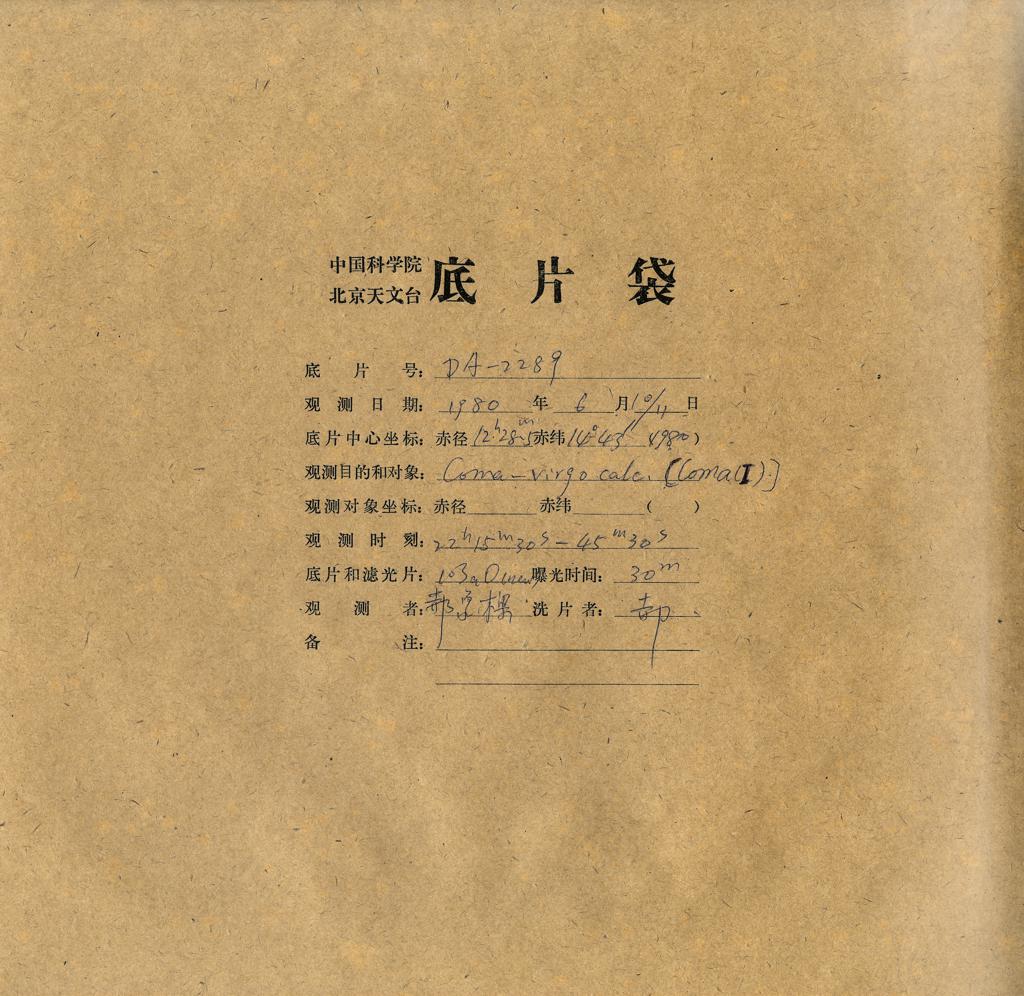 中国科学院
北京天文台
底片袋
底片号: DA-2289
观测日期: 1980年6月10/11日
底片中心坐标: 赤径12h28m.5赤纬14°43′ 1980)
观测目的和对象: Coma-virgo calc. [Coma(I).]
观测对象坐标: 赤径 赤纬 ( )
观测时刻: 22h15m30s-45m30s
底片和滤光片: 103aO 曝光时间: 30m
观测者: 郝 洗片者: 郝.
备注: